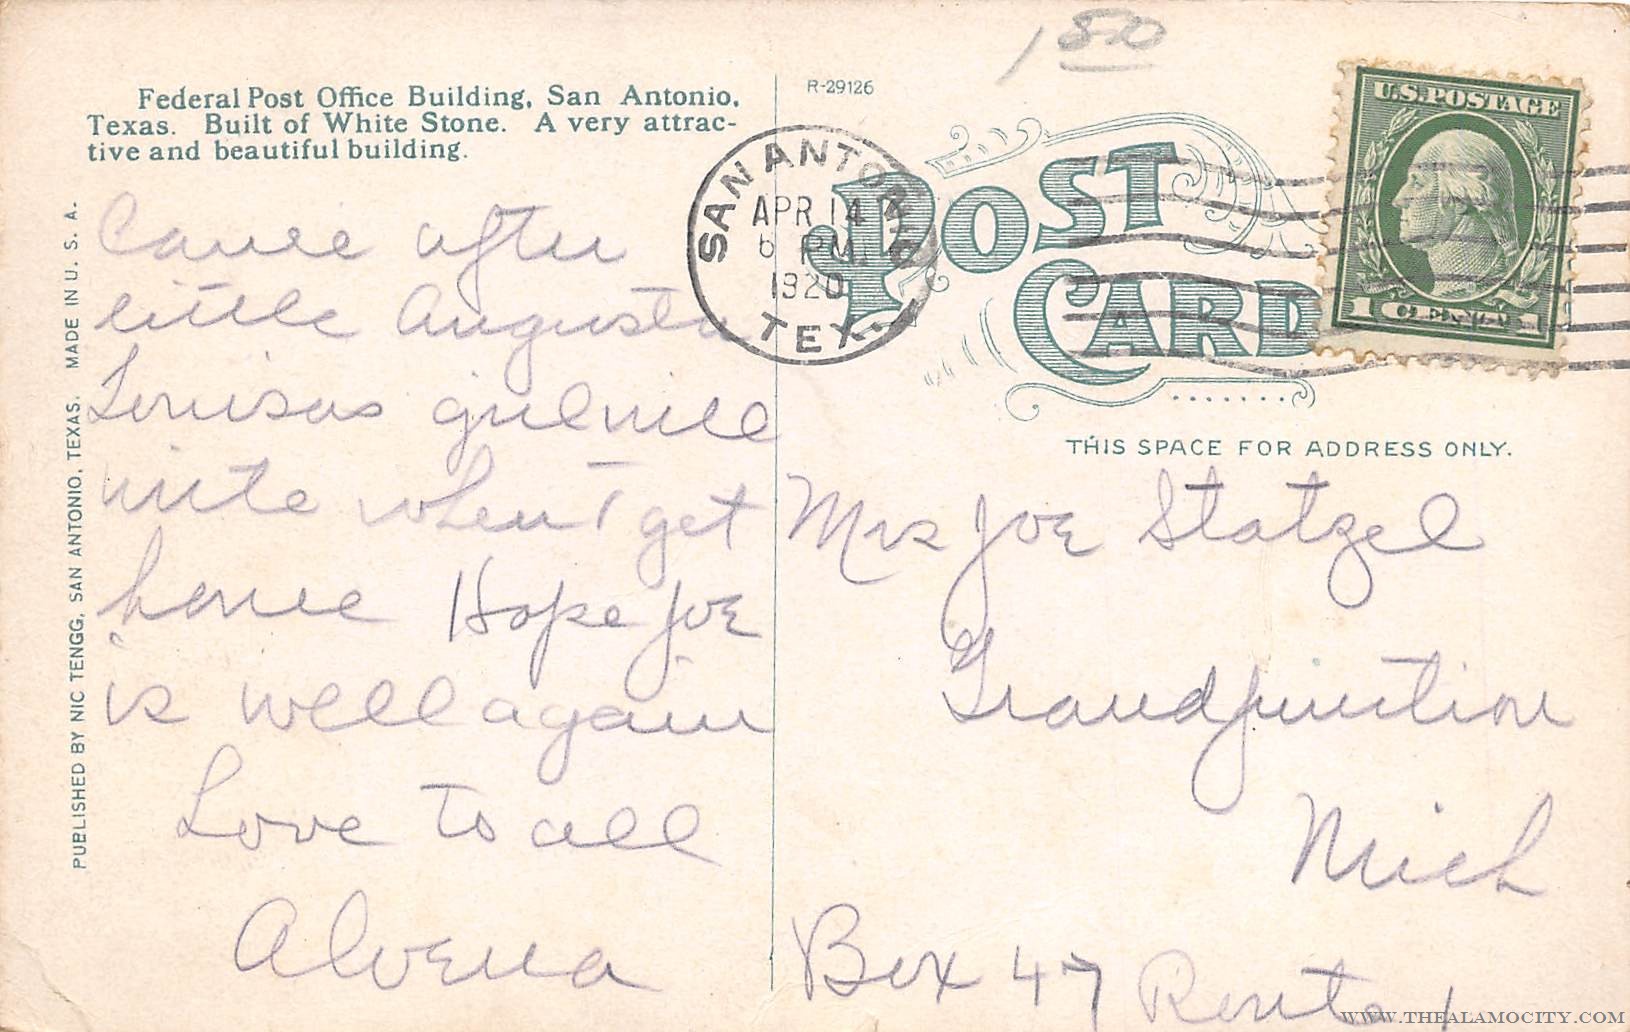 1 80
R-29126
Federal Post Office Building, San Antonio,
Texas. Built of White Stone. A very attrac-
tive and beautiful building.
PUBLISHED BY NIC TENGG, SAN ANTONIO, TEXAS. MADE IN U. S. A.
Came after
little Augusta
Louisas girl will
write when I get
home Hope Joe
is well again
Love to all
Alvena
SAN ANTONIO
APR 14
6 PM
1920
TEX.
POST
CARD
U.S. POSTAGE
1 CENT 1
THIS SPACE FOR ADDRESS ONLY.
Mrs Joe Statzel
Grandjunction
Mich
Box 47 Route 1
WWW.THEALAMOCITY.COM